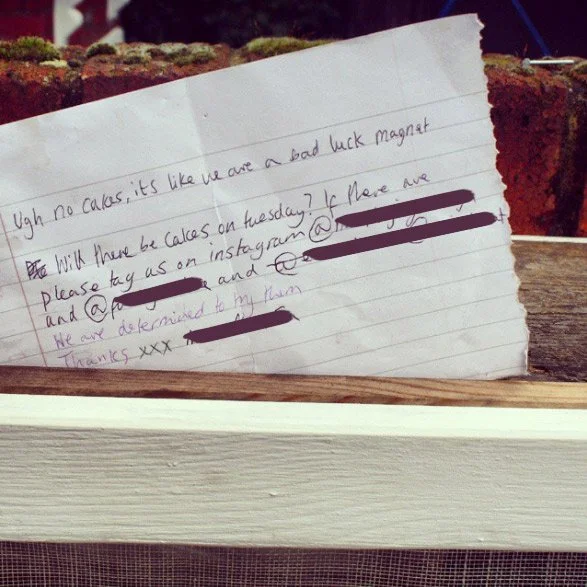 Ugh no cakes, it's like we are a bad luck magnet
Will there be Cakes on tuesday? If there are
please tag us on instagram @
and @ and @
We are determined to try them
Thanks xxx